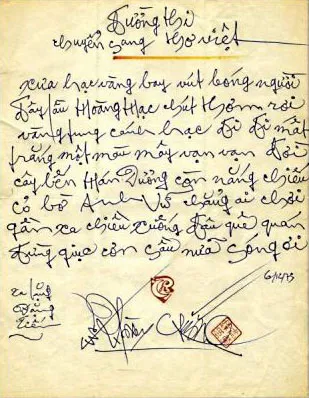 Đường thi
chuyển sang thơ việt
xưa hạc vàng bay vút bóng người
đây lầu Hoàng Hạc chút thơm rơi
vàng tung cánh hạc đi đi mất
trắng một màu mây vạn vạn đời
cây bến Hán Dương còn nắng chiếu
cỏ bờ Anh Vũ chẳng ai chơi
gần xa chiều xuống đâu quê quán
đừng giục cơn sầu nữa sóng ơi
Vũ Hoàng Chương